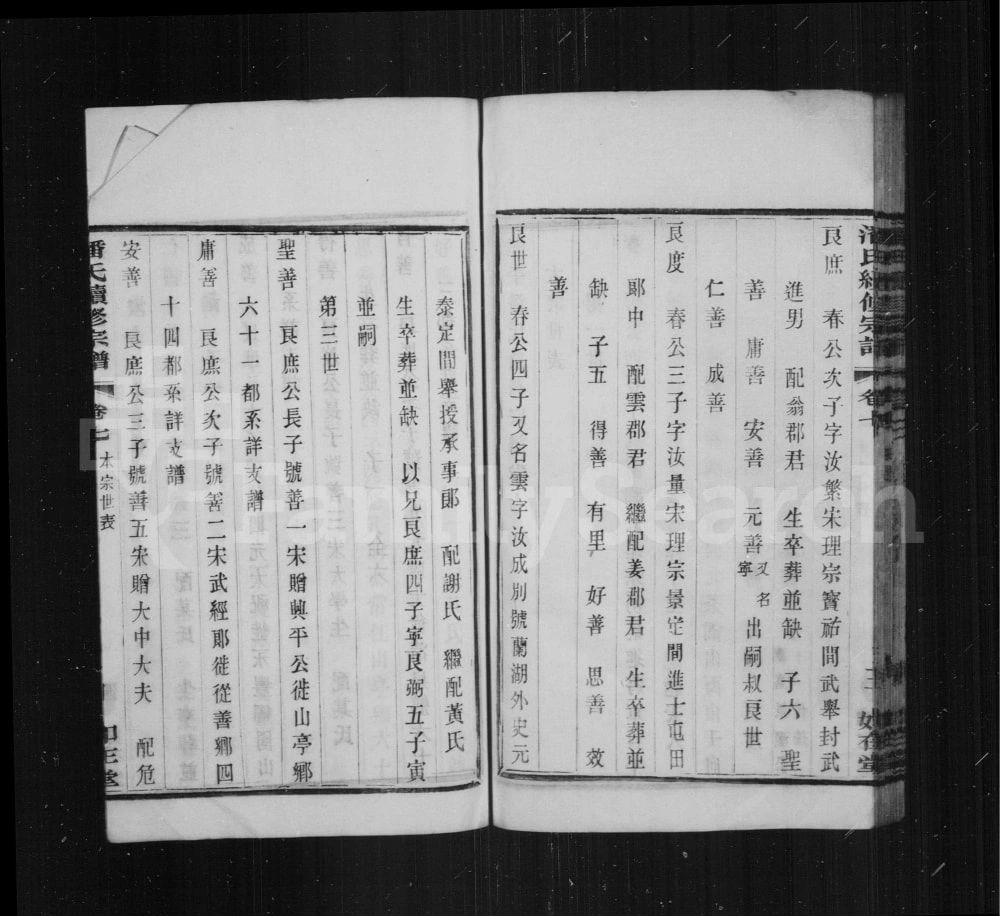 良庶 春公次子字汝繁宋理宗寳祐間武舉封武
進男 配翁郡君 生卒葬並缺 子六 聖
善 庸善 安善 元善又名寧 出嗣叔良世
仁善 成善
良度 春公三子字汝量宋理宗景定間進士屯田
郎中 配雲郡君 繼配姜郡君 生卒葬並
缺 子五 得善 有里 好善 思善 效
善
良世 春公四子又名雲字汝成别號蘭湖外史元
泰定間舉授承事郎 配謝氏 繼配黃氏
生卒葬並缺 以兄良庶四子寧良弼五子寅
並嗣
第三世
聖善 良庶公長子號善一宋贈興平公徙山亭鄉
六十一都系詳支譜
庸善 良庶公次子號善二宋武經郎徙從善鄉四
十四都系詳支譜
安善 良庶公三子號善五宋贈大中大夫 配危
潘氏續修宗譜 卷七 本宗世表